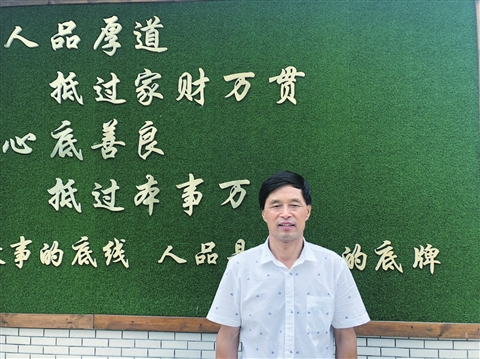 人品厚道
抵过家财万贯
心底善良
抵过本事万
事的底线 人品是 的底牌